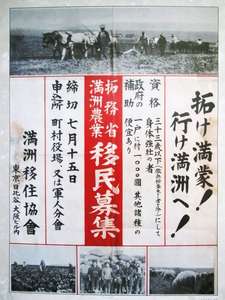 拓け満蒙!
行け満洲へ!
資格
三十三歳以下
身体強壮の者
にして、
政府の補助
一戸に付一〇〇〇圓 其他諸種の便宜あり
拓務省
満洲農業
移民募集
締切 七月十五日
申込所 町村役場 又は軍人分會
満洲移住協會
東京・日比谷・大阪ビル内